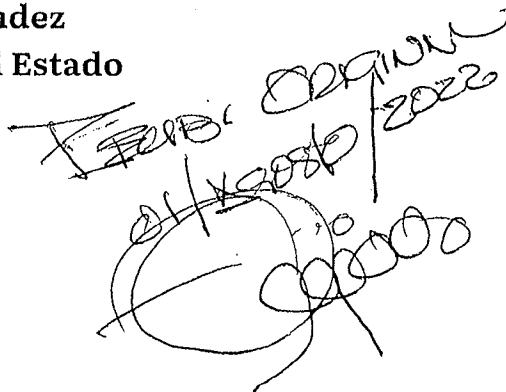 ndez
l Estado
Recibí ORIGINAL
01/Agosto/2022